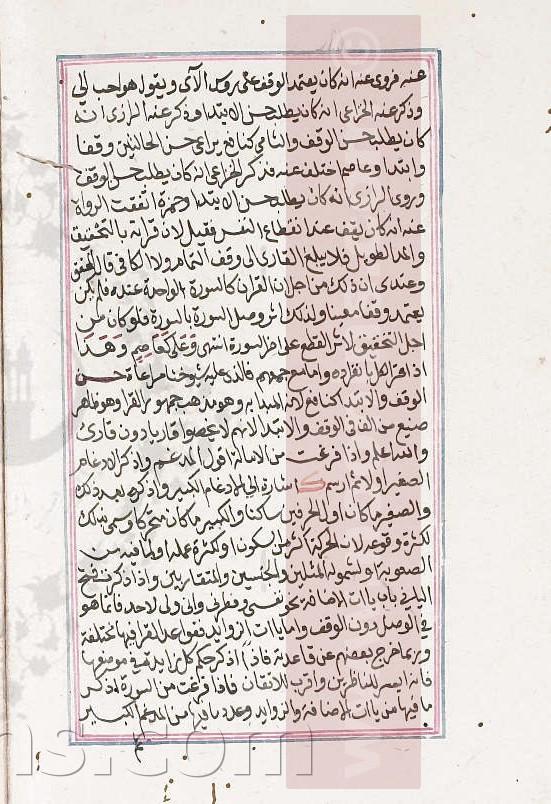 عنه فروى عنه انه كان يعتمد الوقف على روس الآى ويقول هو احب الي
وذكر عنه الخزاعي انه كان يطلب حسن الابتدا وذكر عنه الرازي انه
كان يطلب حسن الوقف والشامي كنافع يراعي حسن الحالتين وقفا
وابتدا وعاصم اختلف عنه فذكر الخزاعي انه كان يطلب حسن الوقف
وروى الرازي انه كان يطلب حسن الابتدا وحمزة اتفقت الرواة
عنه انه كان يقف عند انقطاع النفس فقيل لان قرائة بالتحقيق
والمد الطويل فلا يبلغ القارى الى وقف التمام ولا الكافى قال المحقق
وعندى ان ذلك من اجل ان القرآن كالسورة الواحدة عنده فلم يكن
يعتمد وقفا معينا ولذلك اثر وصل السورة بالسورة فلو كان من
اجل التحقيق لاثر القطع على اخر السورة انتهى وعلى كعاصم وهذا
اذا قرا كل بانفراده واما مع جمعهم فالذى عليه شيوخنا مراعاة حسن
الوقف والابتدا كنافع لانه المبدا به وهو مذهب جمهور القرا وهو ظاهر
صنيع من الف فى الوقف والابتدا لانهم لم يخصوا قاريا دون قارئ
والله اعلم واذا فرغت من الامالة اقول المدغم واذكر الادغام
الصغير اولا ثم ارسم ك اشارة الى الادغام الكبير واذكره بعد ذلك
والصغير ما كان اول الحرفين ساكنا والكبير ما كان متحركا وسمى بذلك
لكثرة وقوعه لان الحركة اكثر من السكون او لكثرة عمله او لما فيه من
الصعوبة او لشموله المثلين والجنسين والمتقاربين واذا ذكرت فتح
الياء في باب ياات الاضافة نحو نفسى وفطرنى وانى ولى لاحد فانما هو
في الوصل دون الوقف واما ياات الزوايد فقواعد القرا فيها مختلفة
وربما خرج بعضهم عن قاعدته فلذا اذكر حكم كل زايدة في موضعها
فانه ايسر للناظرين واقرب للاتقان فاذا فرغت من السورة اذكر
ما فيها من ياات الاضافة والزوايد وعدد ما فيها من المدغم الكبير